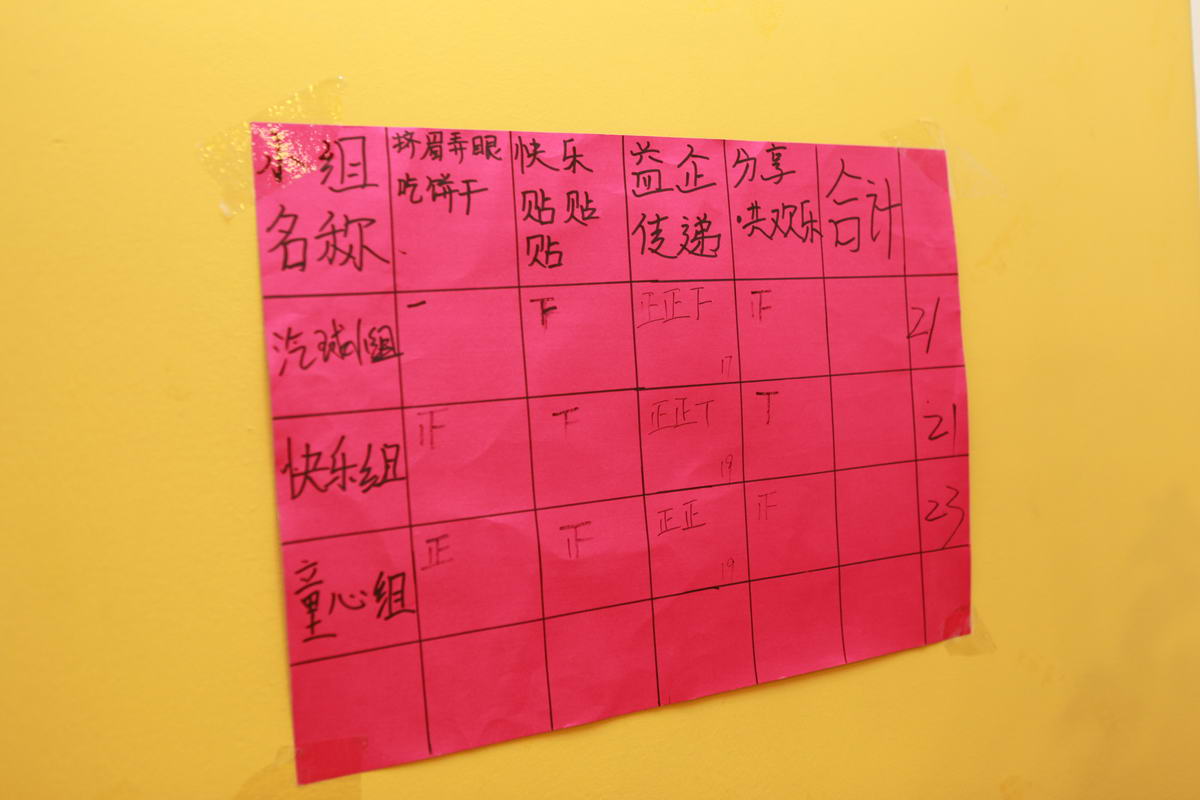 小组 挤眉弄眼 快乐 益企 分享 合计
名称 吃饼干 贴贴 传递 哄欢乐
贴
汽球组 一 下 正正下 正 21
17
快乐组 正 下 正正丅 丅 21
19
童心组 正 正 正正 正 23
19